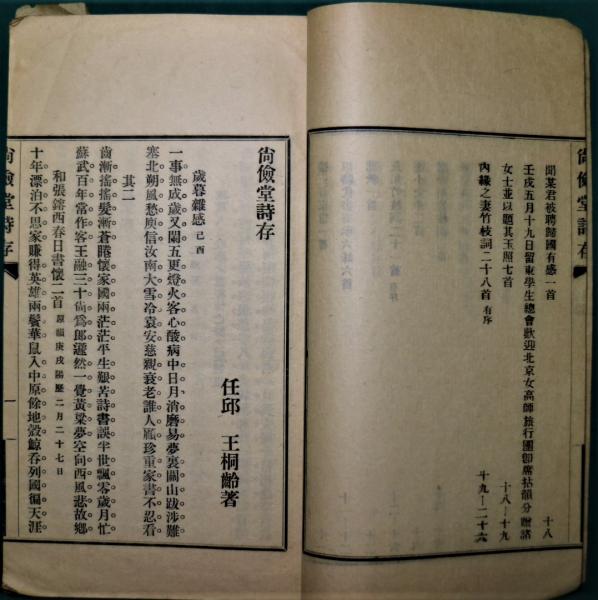 尙儉堂詩存
聞某君被聘歸國有感一首
十八
壬戌五月十九日留東學生總會歡迎北京女高師旅行團卽席拈韻分贈諸
女士並以題其玉照七首
十八－十九
內緣之妻竹枝詞二十八首 有序
十九－二十六
尙儉堂詩存
任邱 王桐齡著
歲暮雜感 己酉
一事無成歲又闌五更燈火客心酸病中日月消磨易夢裏關山跋涉難
塞北朔風愁庾信汝南大雪冷袁安慈親衰老誰人膽珍重家書不忍看
其二
齒漸搖搖髮漸蒼睠懷家國兩茫茫平生艱苦詩書誤半世飄零歲月忙
蘇武百年常作客王融三十尙爲郎邅然一覺黃粱夢空向西風悲故鄉
和張鎔西春日書懷二首 原韻庚戌陽歷二月二十七日
十年漂泊不思家賺得英雄兩鬢華鼠入中原餘地殼鯨吞列國徧天涯
尙儉堂詩存
一